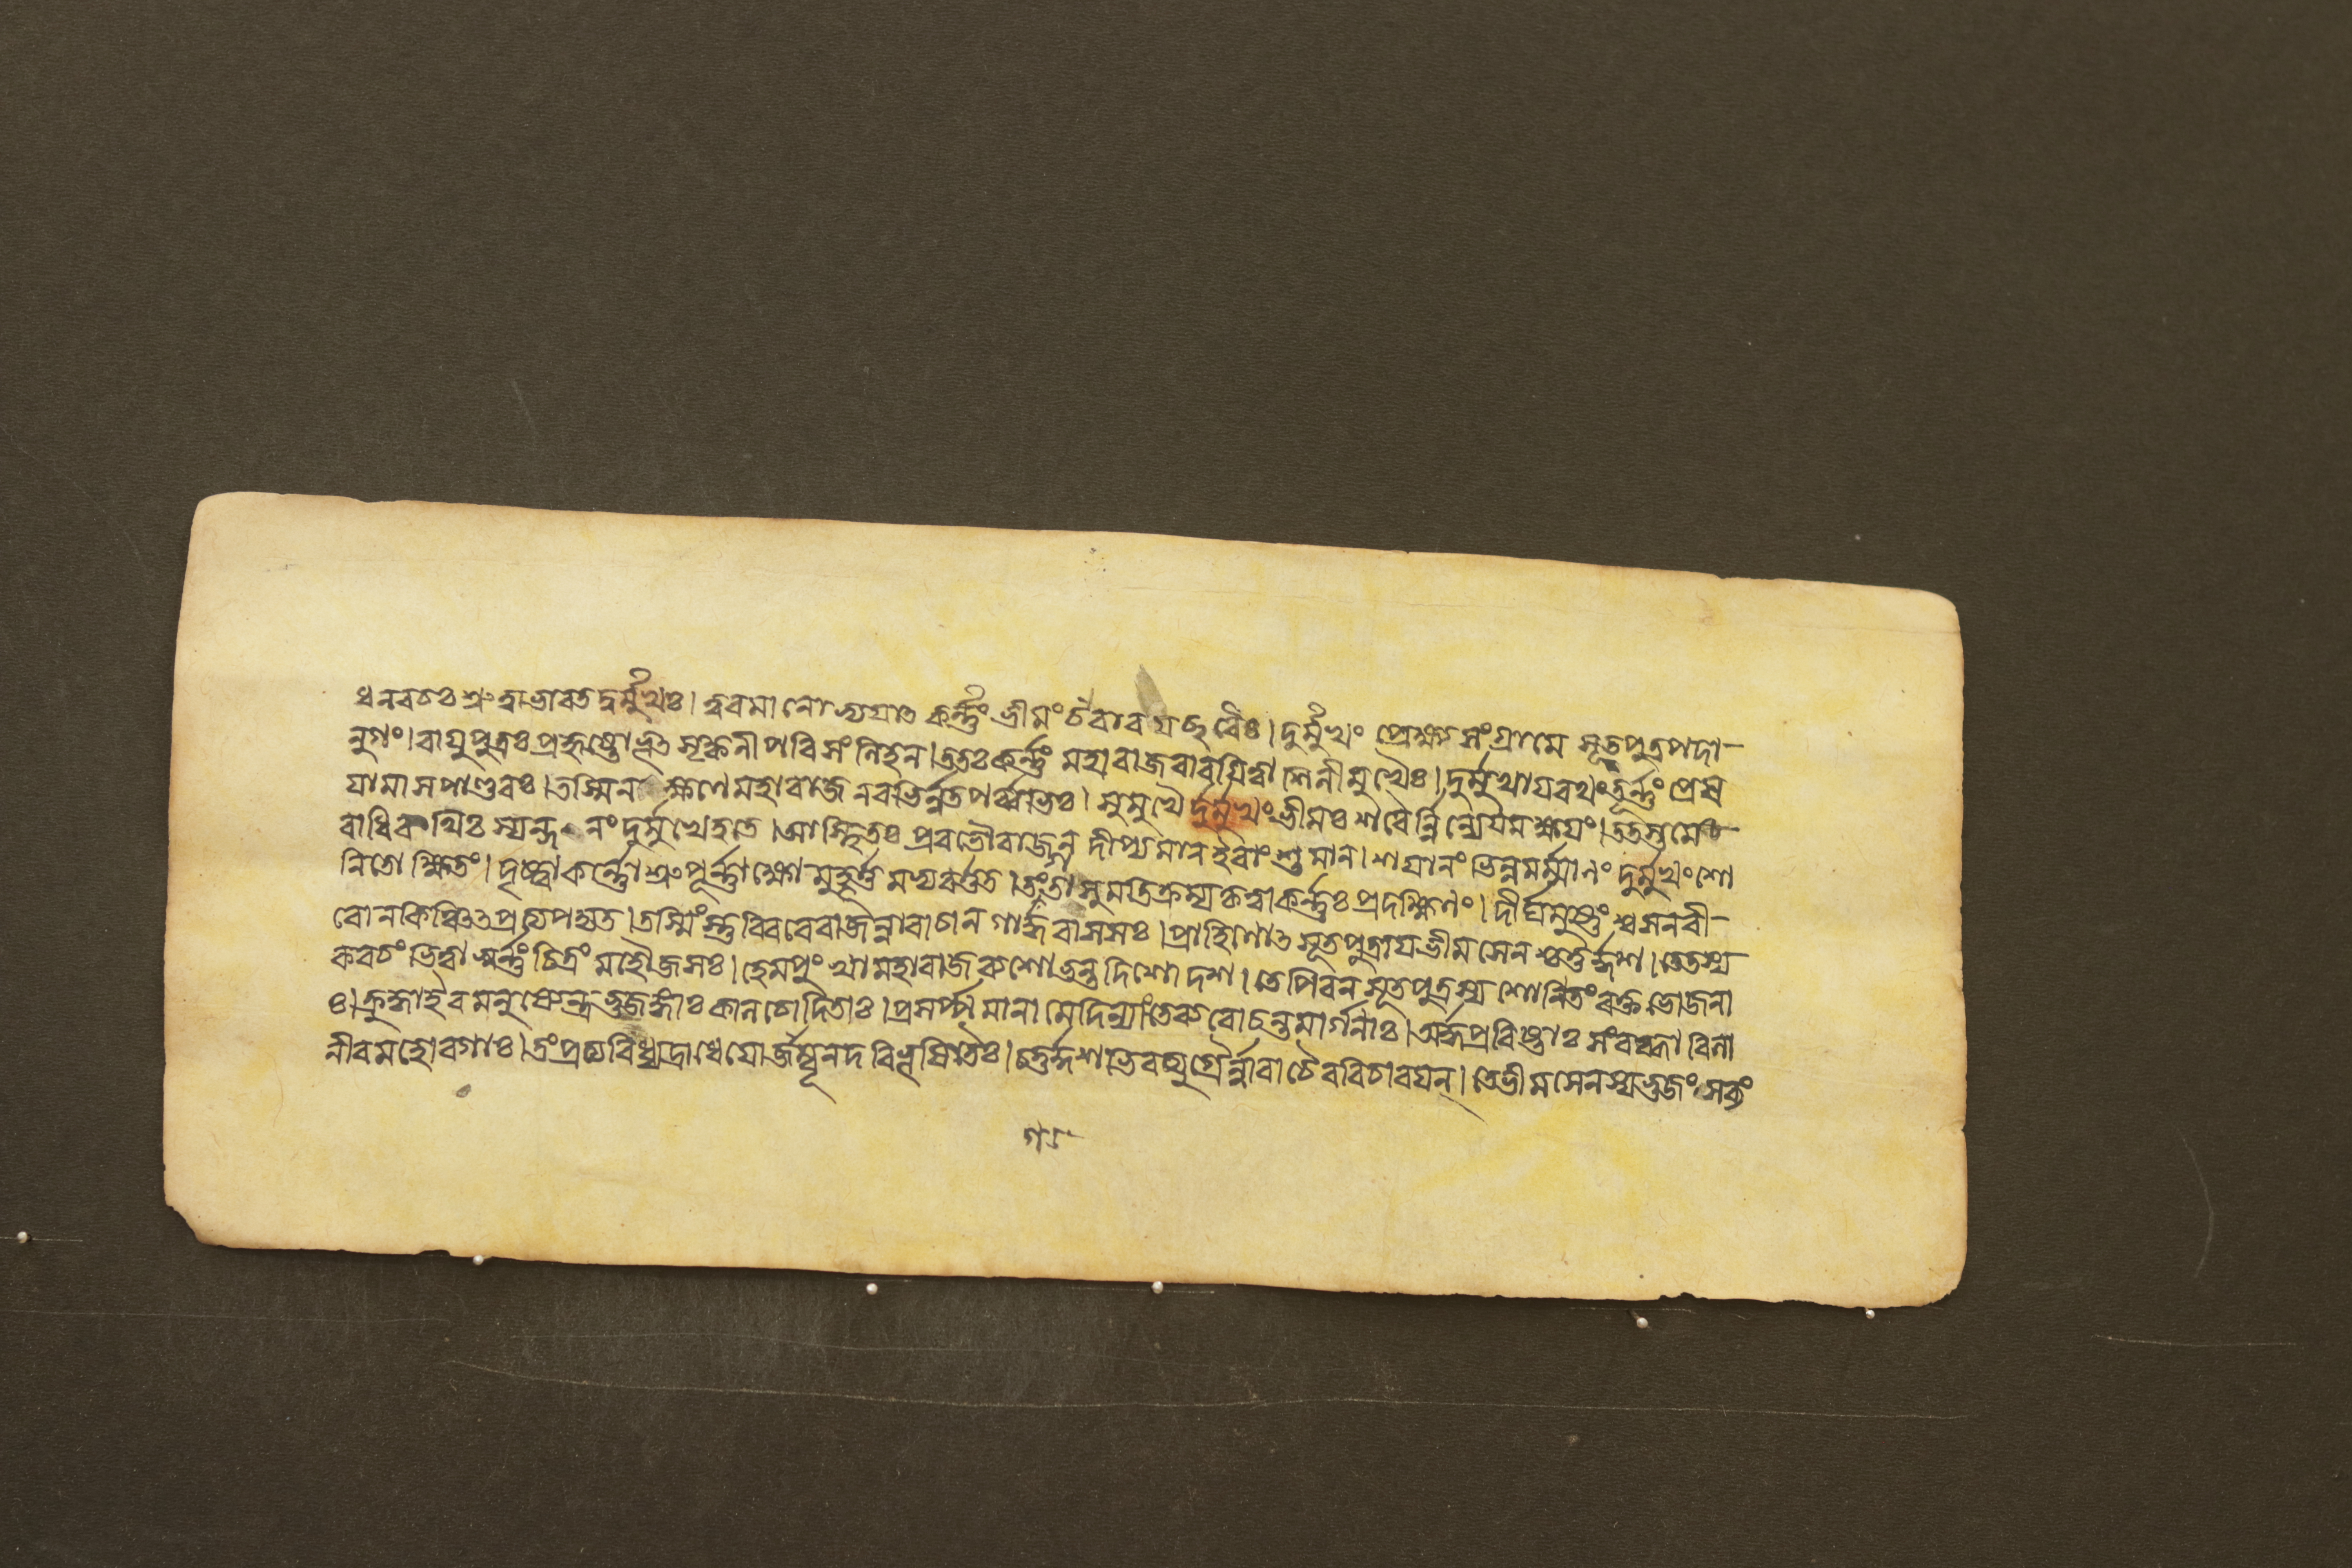 ধনবচঃ শ্রুত্বাভারতদুর্মুখঃ। ত্বরমানোভ্যযাৎ কর্ন্নং ভীমং চৈবারযচ্ছরৈঃ। দুর্মুখং প্রেক্ষ্যসংগ্রামে সূতপুত্রপদা-
নুগং। বাযুপুত্রঃ প্রহৃষ্টোভূৎ সৃক্কনীপরিসংলিহন। ততঃ কর্ন্নং মহারাজবারযিত্বা শিলীমুখৈঃ। দুর্মুখাযরথং তূর্ন্নং প্রেষ
যামাসপাণ্ডবঃ। তস্মিনক্ষণে মহারাজনবভির্ন্নতপর্ব্বভিঃ। সুমুখৈ র্দুর্মুখং ভীমঃ শরৈর্ন্নিন্যেযমক্ষযং। ততস্তমে
বাধিরথিঃ স্যন্দনং দুর্মুখেহতে। আস্থিতঃ প্রবভৌরাজন দীপ্যমানইবাংশুমান। শযানং ভিন্নমর্ম্মানং দুর্মুখং শো
নিতোক্ষিতং। দৃষ্ট্বাকর্ন্নোশ্রুপূর্ন্নাক্ষো মুহূর্ত্তমভ্যবর্ত্তত। তং গতাসুমতিক্রম্যকৃত্বাকর্ন্নঃ প্রদক্ষিনং। দীর্ঘমুষ্ণং শ্বসনবী-
রোনকিঞ্চিৎপ্রত্যপদ্যত। তস্মিংস্তুবিবরেরাজন্নারাচান গার্দ্ধবাসসঃ। প্রাহিণোৎ সূতপুত্রাযভীমসেনশ্চতুর্দ্দশ। তেতস্য
কবচং ভিত্বা স্বর্ন্নং চিত্রং মহৌজসঃ। হেমপুংখামহারাজ দিশোদশ। তেপিবন সূতপুত্রস্য শোনিতং রক্তভোজনা
ঃ। ক্রুদ্ধাইবমনুষ্যেন্দ্রভুজঙ্গাঃ কালচোদিতাঃ। প্রসর্প্পমানামেদিন্যাং তেব্যরোচন্তমার্গনাঃ। অর্দ্ধপ্রবিষ্টাঃ সংরব্ধা বিলা
নীবমহোরগাঃ। তং প্রত্যবিধ্যদ্রাধেযোর্জম্বূনদবিভূষিতৈঃ। চতুর্দ্দশভিরত্যুগ্রৈর্ন্নারাচৈরবিচারযন্। তেভীমসেনস্যভুজং সব্যং